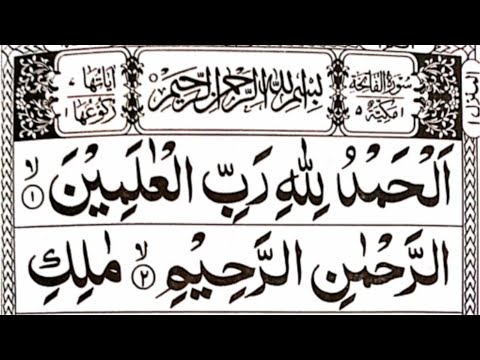 سُوْرَةُ الْفَاتِحَةِ
مَكِّيَّةٌ ٥
بِسْمِ اللهِ الرَّحْمٰنِ الرَّحِيْمِ
اٰيَاتُهَا ٧
رُكُوْعُهَا ١
اَلْحَمْدُ لِلّٰهِ رَبِّ الْعٰلَمِيْنَ ۙ ١
الرَّحْمٰنِ الرَّحِيْمِ ۙ ٢ مٰلِكِ